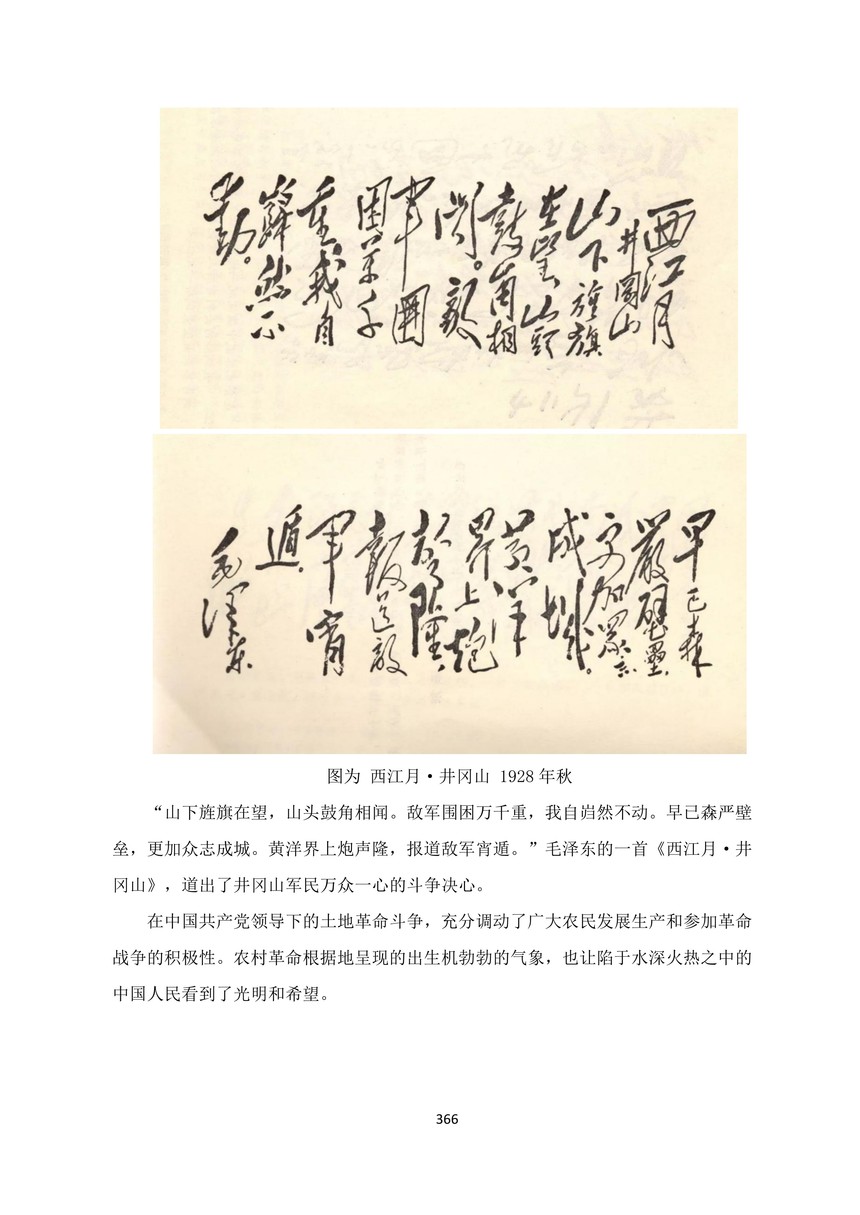 西江月
井岡山
山下旌旗
在望山頭
鼓角相
聞。敵
軍圍
困萬千
重我自
巋然不
動。
早已森
嚴壁壘,
更加眾志
成城。
黄洋
界上炮
聲隆,
報道敵
軍宵
遁。
毛澤東
图为 西江月·井冈山 1928 年秋
“山下旌旗在望，山头鼓角相闻。敌军围困万千重，我自岿然不动。早已森严壁
垒，更加众志成城。黄洋界上炮声隆，报道敌军宵遁。”毛泽东的一首《西江月·井
冈山》，道出了井冈山军民万众一心的斗争决心。
在中国共产党领导下的土地革命斗争，充分调动了广大农民发展生产和参加革命
战争的积极性。农村革命根据地呈现的出生机勃勃的气象，也让陷于水深火热之中的
中国人民看到了光明和希望。
366